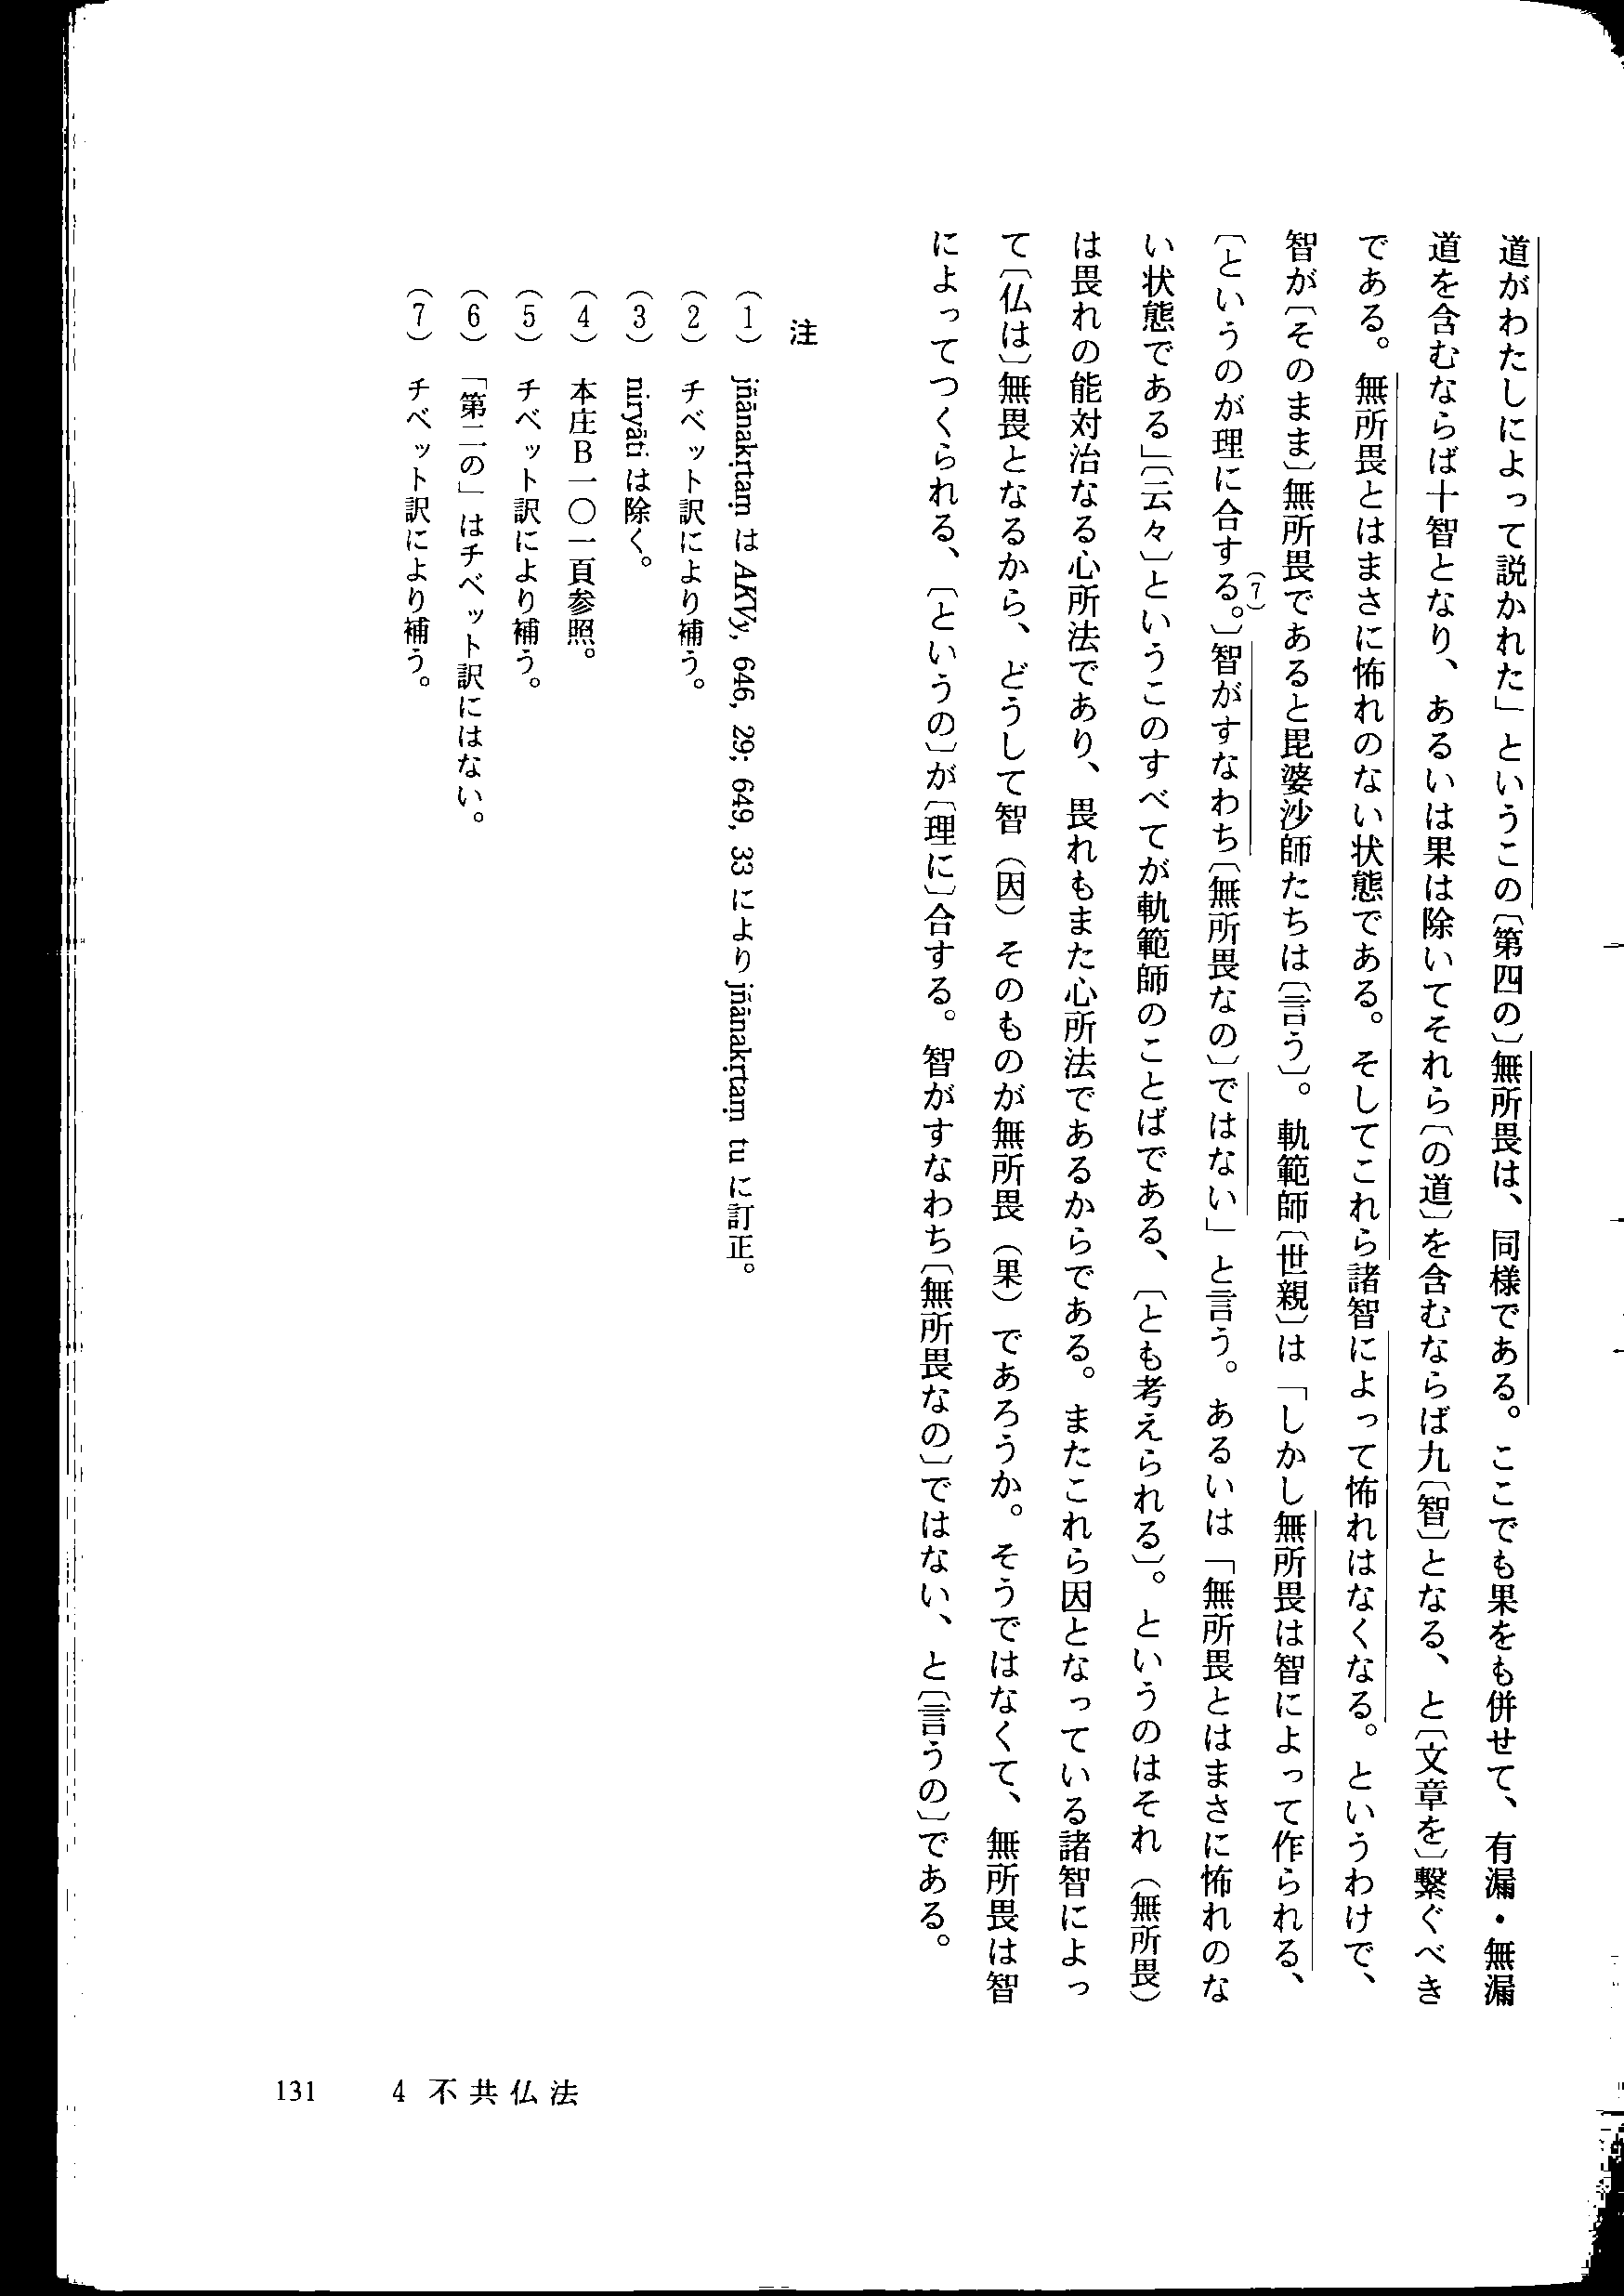 道がわたしによって説かれた」というこの〔第四の〕無所畏は、同様である。ここでも果をも併せて、有漏・無漏
道を含むならば十智となり、あるいは果は除いてそれら〔の道〕を含むならば九〔智〕となる、と〔文章を〕繋ぐべき
である。無所畏とはまさに怖れのない状態である。そしてこれら諸智によって怖れはなくなる。というわけで、
智が〔そのまま〕無所畏であると毘婆沙師たちは〔言う〕。軌範師〔世親〕は「しかし無所畏は智によって作られる、
〔というのが理に合する。〕(7)智がすなわち〔無所畏なの〕ではない」と言う。あるいは「無所畏とはまさに怖れのな
い状態である」〔云々〕というこのすべてが軌範師のことばである、〔とも考えられる〕。というのはそれ（無所畏）
は畏れの能対治なる心所法であり、畏れもまた心所法であるからである。またこれら因となっている諸智によっ
て〔仏は〕無畏となるから、どうして智（因）そのものが無所畏（果）であろうか。そうではなくて、無所畏は智
によってつくられる、〔というの〕が〔理に〕合する。智がすなわち〔無所畏なの〕ではない、と〔言うの〕である。
注
(1) jñānakṛtaṃ は AKVy, 646, 29; 649, 33 により jñānakṛtaṃ tu に訂正。
(2) チベット訳により補う。
(3) niryāti は除く。
(4) 本庄B一〇一頁参照。
(5) チベット訳により補う。
(6) 「第二の」はチベット訳にはない。
(7) チベット訳により補う。
131 4 不共仏法